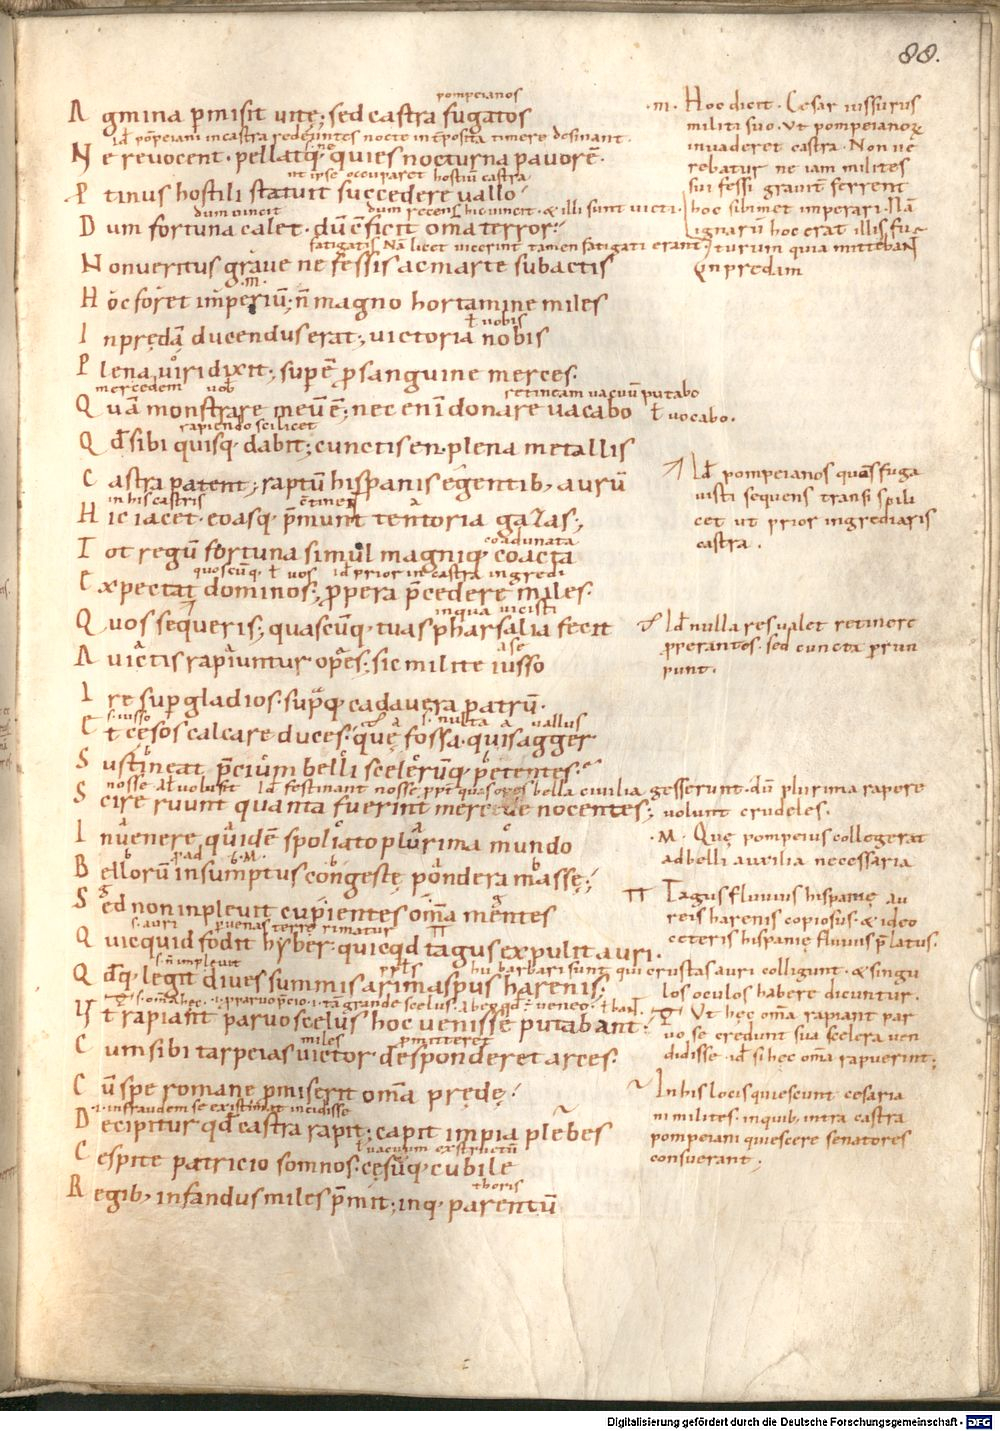 88.
pompeianos
Agmina pmisit uitę; sed castra fugatos
Id pōpeiani in castra redeuntes nocte int̄posita timere desinant.
Ne reuocent. pellatq; quies nocturna pauorē.
ut ipse occuparet hostiū castra
Ptinus hostili statuit succedere uallo.
dum uincit dum recens hic uincit. & illi sunt uicti.
Dum fortuna calet. dū c̄ficit om̄a terror.
fatigatis Nā licet uicerint tamen fatigati erant.
Non ueritus graue ne fessis ac marte subactis
.m.
Hoc foret imperiū; n̄ magno hortamine miles
ł uobis
In prędā ducendus erat; uictoria nobis
Plena uiri dixit; supē p sanguine merces.
mercedem uob retineam uacuū putabo
Quā monstrare meū ē; nec eni donare uacabo ł uocabo.
rapiendo scilicet
Qđ sibi quisq; dabit; cunctis en plena metallis
Castra patent; raptū hispanis egentib; aurū
in his castris c̄tinet
Hic iacet. eoasq; p̄munt tentoria gazas;
coadunata
Tot regū fortuna simul magniq; coacta
quoscūq; ł uos Id prior in castra ingredi
Expectat dominos; propera p̄cedere miles.
in qua uicisti
Quos sequeris; quascūq; tuas pharsalia fecit
a se
A uictis rapiuntur opes; sic milite iusso
Ire sup gladios. supq; cadauera patrū.
s. iusso s. nulla a uallus
Et cęsos calcare duces. quę fossa. quis agger
Sustineat p̄cium belli scelerūq; petentes.
nosse at uoluist Id festinant nosse ppt̄ quas opes bella ciuilia gesserunt. dū plurima rapere
Scire ruunt quanta fuerint mercede nocentes; uolunt crudeles.
Inuenere quidē spoliato plurima mundo
Bellorū in sumptus congestę pondera massę;
Sed non inpleuit cupientes om̄a mentes
s. auri p uenas terrę rimatur
Quicquid fodit hyber. quicqd tagus expulit auri.
s. n̄ impleuit hi barbari sunt qui crustas auri colligunt. & singu
Qđq; legit diues summis arimaspus harenis; los oculos habere dicuntur.
Vt rapiant paruo scelus hoc uenisse putabant.
miles pmitteret
Cum sibi tarpeias uictor desponderet arces.
Cū spe romane pmiserit om̄a prędę;
.i. in fraudem se existimat incidisse
Decipitur qđ castra rapit; capit impia plebes
ł uacuum exstructū
Cespite patricio somnos. cęsūq; cubile
thoris
Regib; infandus miles p̄mit; inq; parentū
.m. Hoc dicit. Cesar iussurus
militi suo. Vt pompeianoꝝ
inuaderet castra. Non ue
rebatur ne iam milites
sui fessi grauit̄ ferrent
hoc sibimet imperari. Nā
ignarū hoc erat illis fu
turum quia mitteban̄
In predam
Id pompeianos quos fuga
uisti sequens transi scili
cet ut prior ingrediaris
castra.
Id nulla res ualet retinere
pperantes. sed cuncta p run
punt.
.M. Quę pompeius collegerat
ad belli auxilia necessaria
Tagus fluuius hispanię au
reis harenis copiosus. & ideo
ceteris hispanię fluuiis p̄latus.
Vt hęc om̄a rapiant par
uo se credunt sua scelera uen
didisse. id si hęc om̄a rapuerint;
In his locis quiescunt cesaria
ni milites. in quib; intra castra
pompeiani quiescere senatores
consuerant;
Digitalisierung gefördert durch die Deutsche Forschungsgemeinschaft - DFG